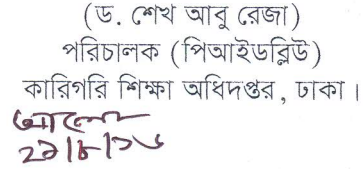 (ড. শেখ আবু রেজা)
পরিচালক (পিআইডব্লিউ)
কারিগরি শিক্ষা অধিদপ্তর, ঢাকা।
২৯/৮/১৬